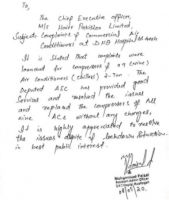 The Chief Executive officer,
M/s Haier Pakistan Limited,
Subject: Compliance of Commercial A/C
Air Conditioners at DHQ Hospital
It is stated that complaints were
launched Air compressors of 09 (nine)
Air conditioners (chillers) 4-Ton. The
Deputed ASC has provided good
services and resolved the issues
and replaced the compressors of All
nine ACs without any charges.
It is highly appreciated to resolve
the issues despite of lockdown situation
in best public interest.
Muhammad Faisal